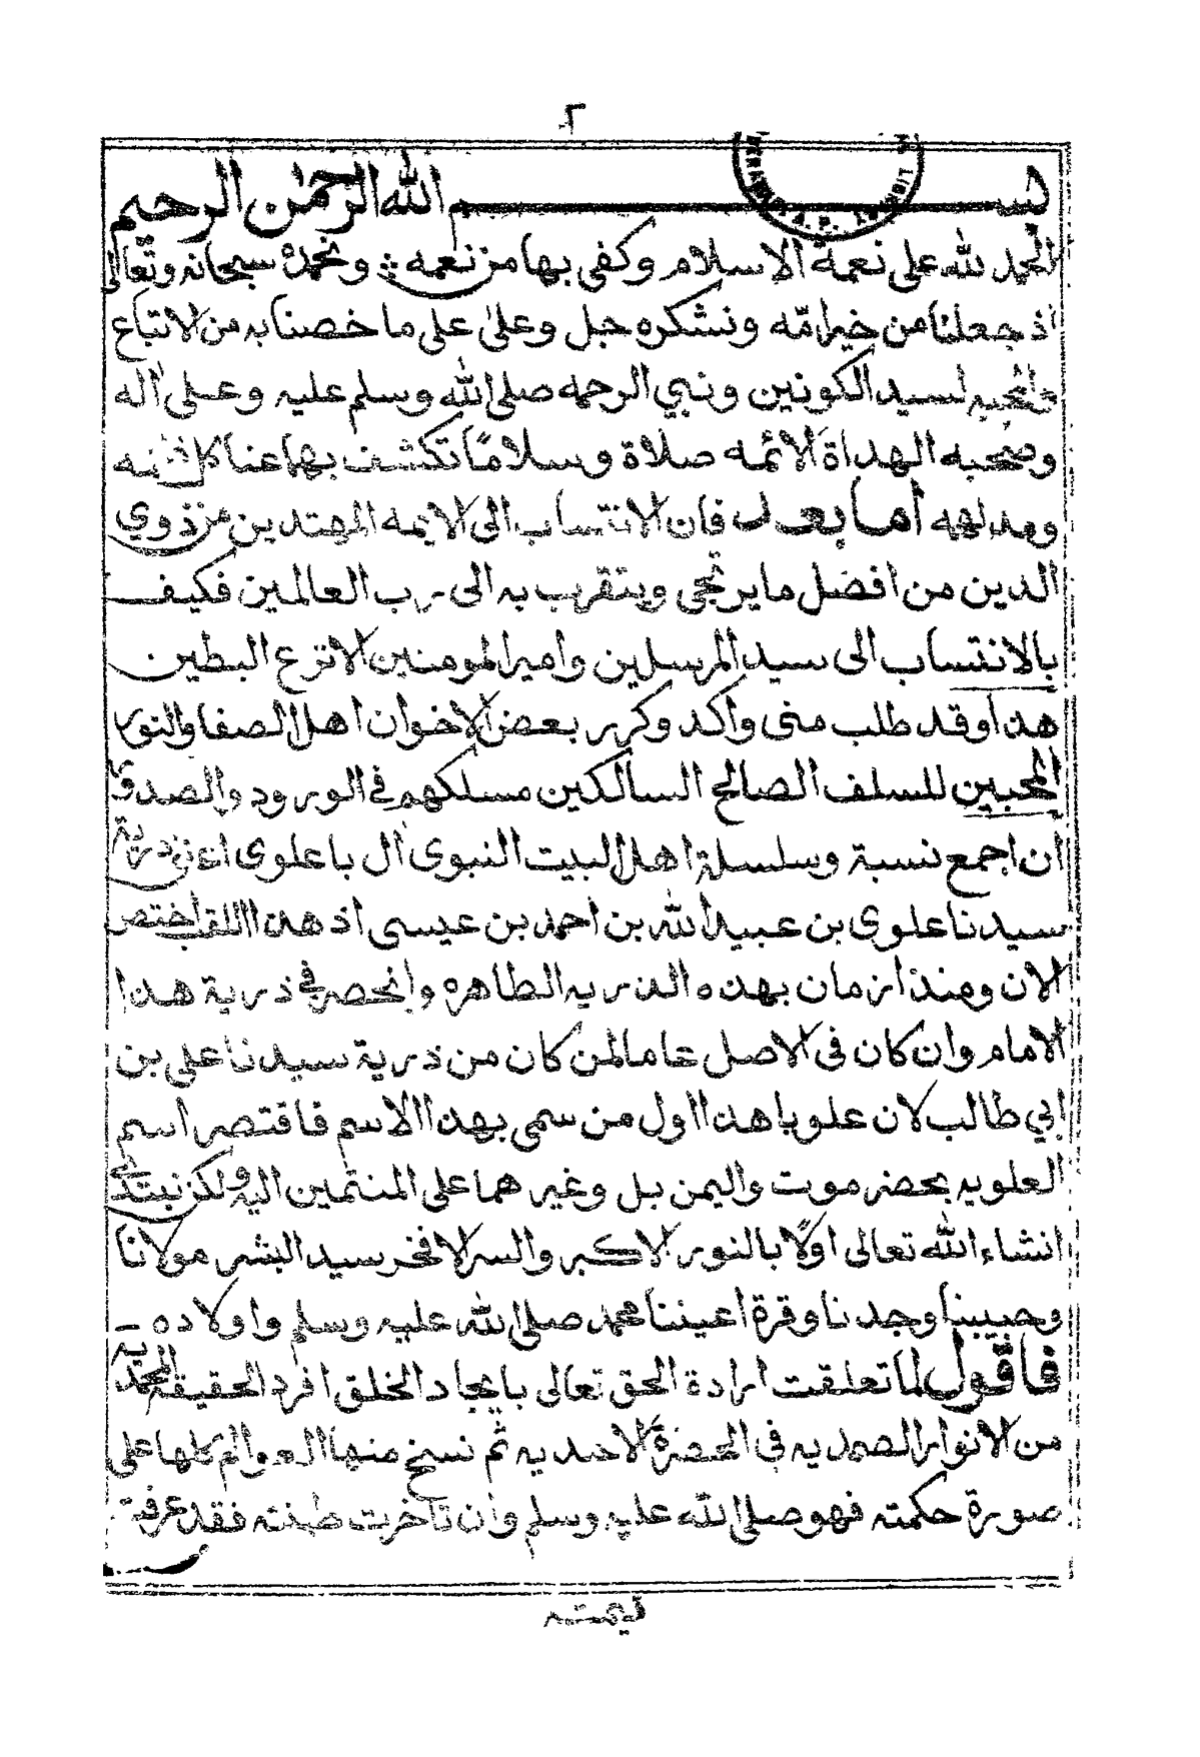 ٢
بســـم الله الرحمن الرحيم
الحمد لله على نعمة الاسلام وكفى بها من نعمه ونحمده سبحانه وتعالى
اذ جعلنا من خير امّه ونشكره جل وعلى على ما خصنا به من الاتباع
والمحبه لسيد الكونين ونبي الرحمه صلى الله وسلم عليه وعلى اله
وصحبه الهداة الائمه صلاة وسلامًا تكشف بها عنا كل غمه
ومدلهمه أما بعد فان الانتساب الى الايمه المهتدين من ذوي
الدين من افضل ما يرتجى ويتقرب به الى رب العالمين فكيف
بالانتساب الى سيد المرسلين وامير المومنين الانزع البطين
هذا وقد طلب منى واكد وكرر بعض الاخوان اهل الصفا والنور
المحبين للسلف الصالح السالكين مسلكهم في الورود والصدور
ان اجمع نسبة وسلسلة اهل البيت النبوى آل باعلوى اعنى ذرية
سيدنا علوى بن عبيد الله بن احمد بن عيسى اذ هذا اللقب اختص
الان ومنذ ازمان بهذه الذريه الطاهره وانحصر في ذرية هذا
الامام وان كان فى الاصل عاما لمن كان من ذرية سيدنا على بن
ابي طالب لان علويا هذا اول من سمى بهذا الاسم فاقتصر اسم
العلويه بحضرموت واليمن بل وغيرهما على المنتمين اليه ولكن نبتدى
انشاء الله تعالى اولًا بالنور الاكبر والسر الافخر سيد البشر مولانا
وحبيبنا وجدنا وقرة اعيننا محمد صلى الله عليه وسلم واولاده
فاقول لما تعلقت ارادة الحق تعالى بايجاد الخلق افرد الحقيقه المحمديه
من الانوار الصمديه في الحضرة الاحديه ثم نسخ منها العوالم كلها على
صورة حكمته فهو صلى الله عليه وسلم وان تاخرت طينته فقد عرفت
قيمته